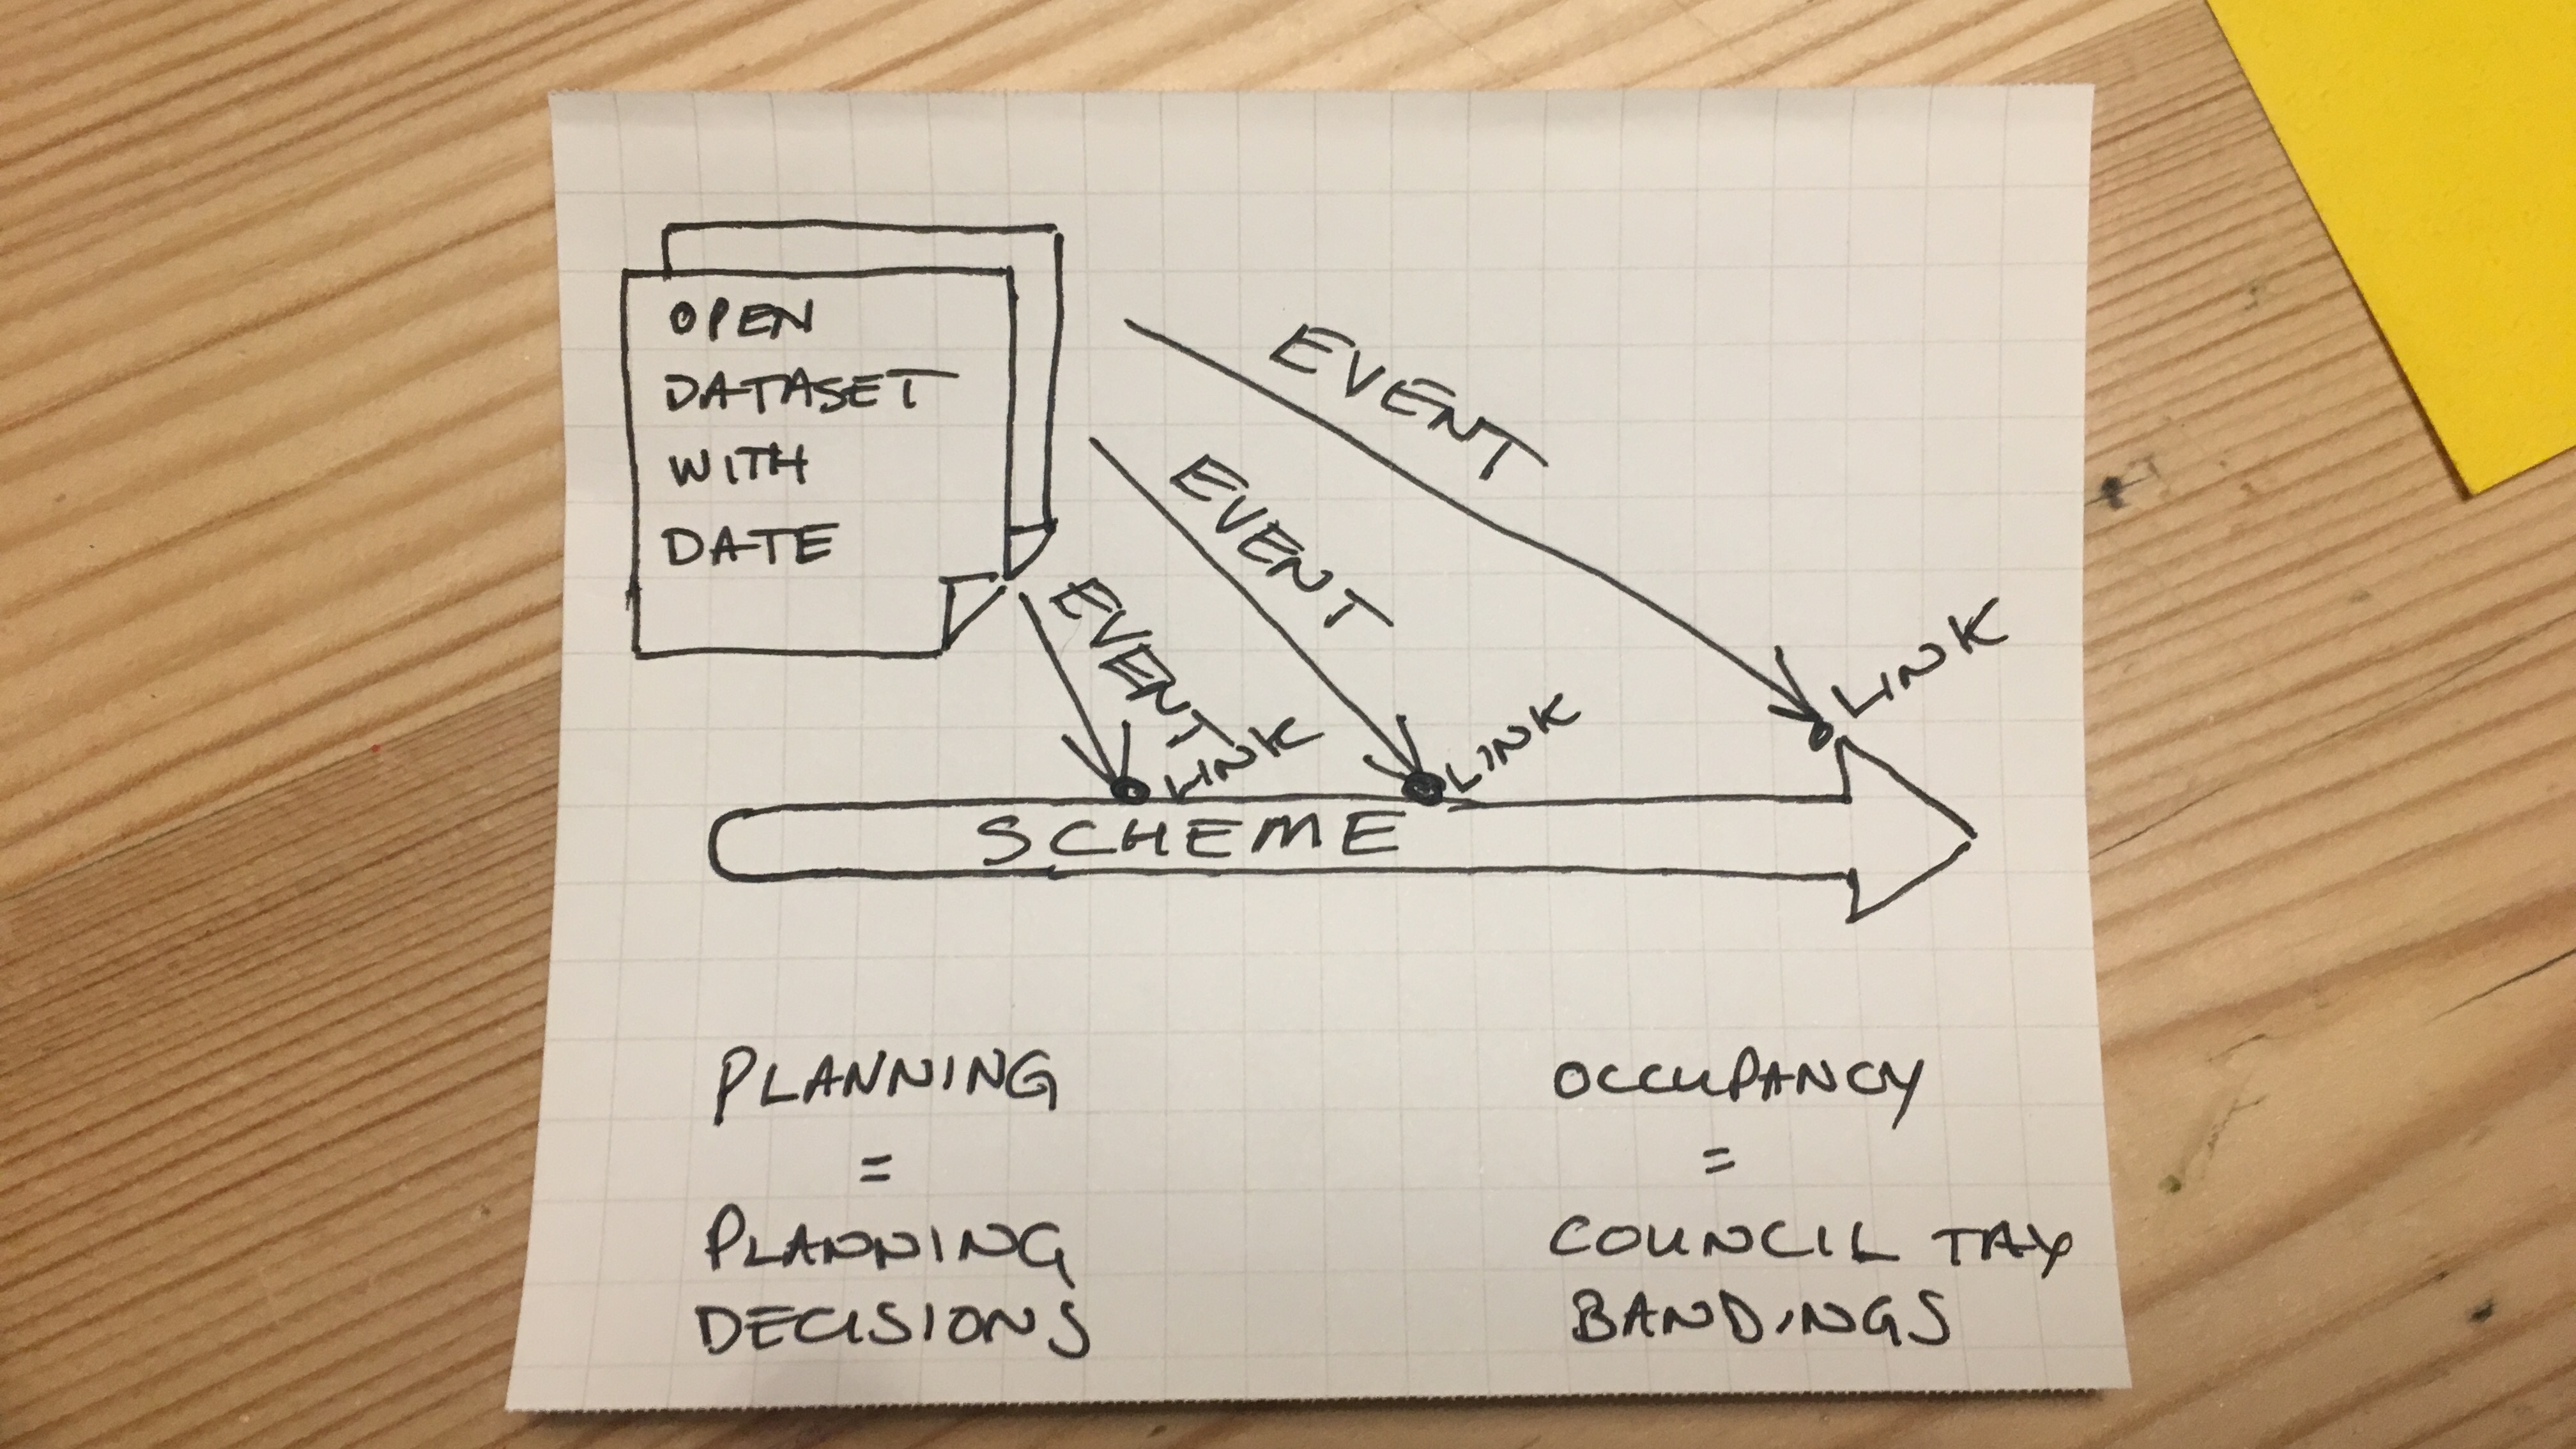 OPEN
DATASET
WITH
DATE
EVENT
EVENT
EVENT
LINK
LINK
LINK
SCHEME
PLANNING
=
PLANNING
DECISIONS
OCCUPANCY
=
COUNCIL TAX
BANDINGS